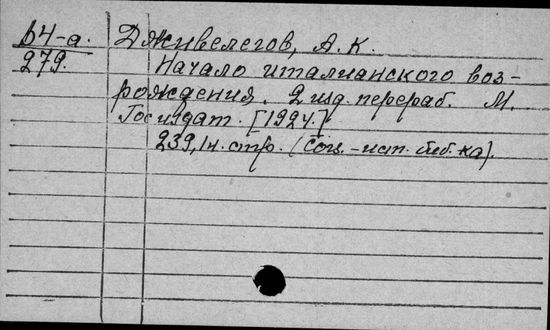 64-а. Дживелегов, А.К.
279. Начало итальянского воз-
рождения. 2 изд. перераб. М.
Госиздат. [1924.]
239, 1 н. стр. (Соц.-ист. биб.-ка).